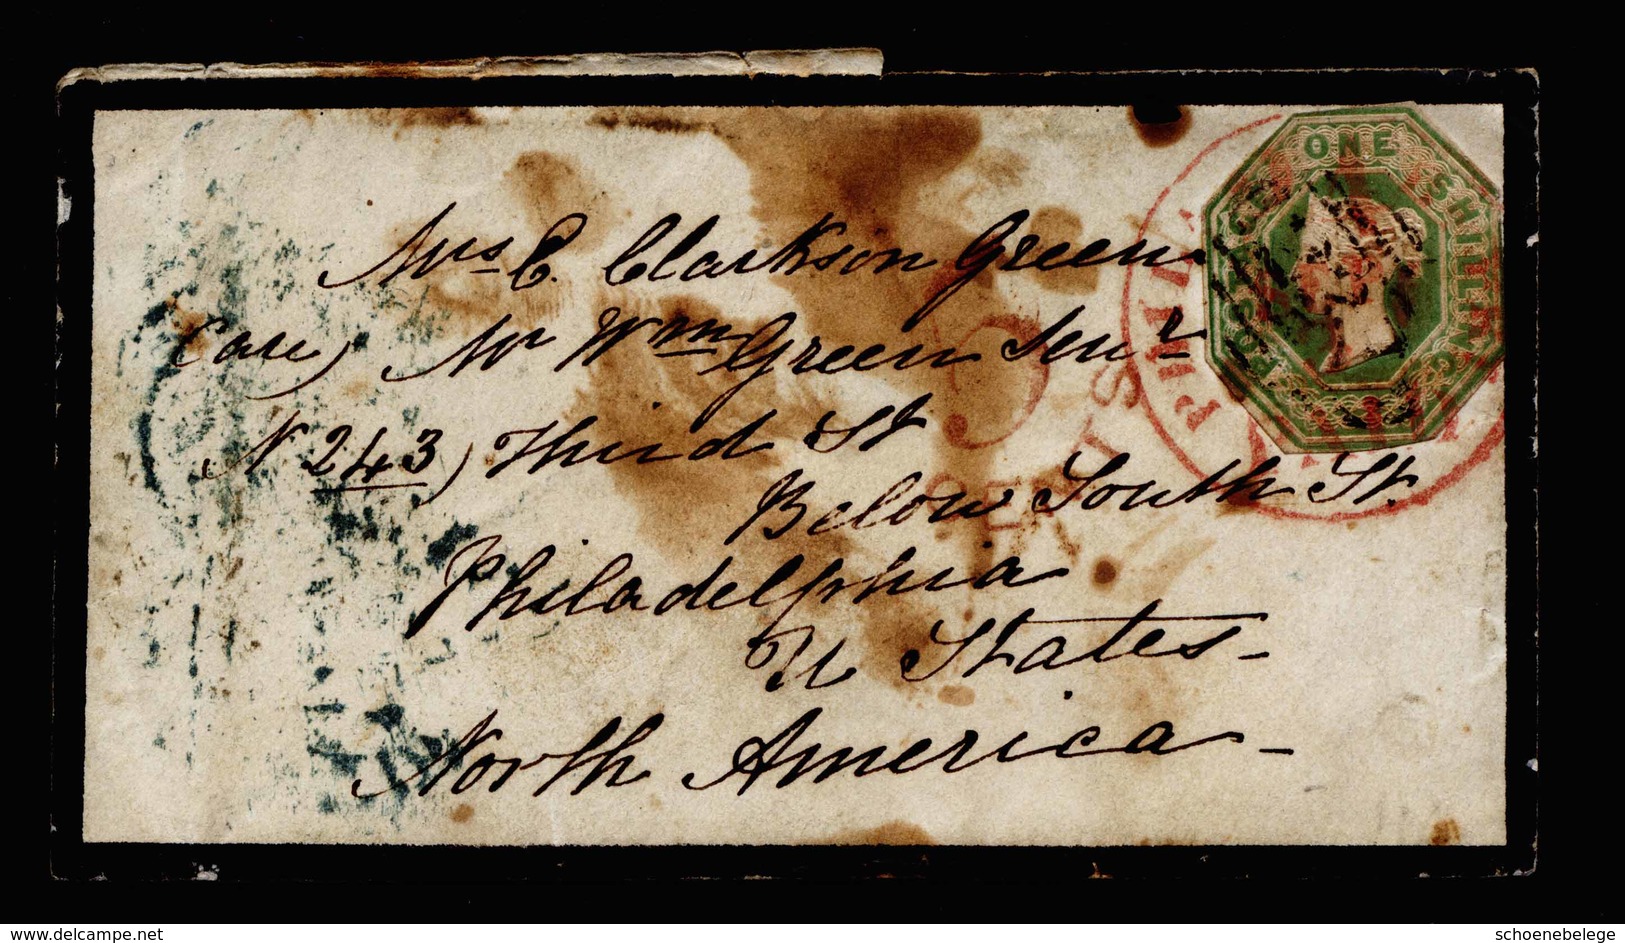 Mrs C. Clarkson Green
Care) Mr Wm Green Senr
N 243) Third St
Below South St.
Philadelphia
U States-
North America-
POSTAGE
ONE
SHILLING
PHILA
5
CENTS
www.delcampe.net
schoenebelege